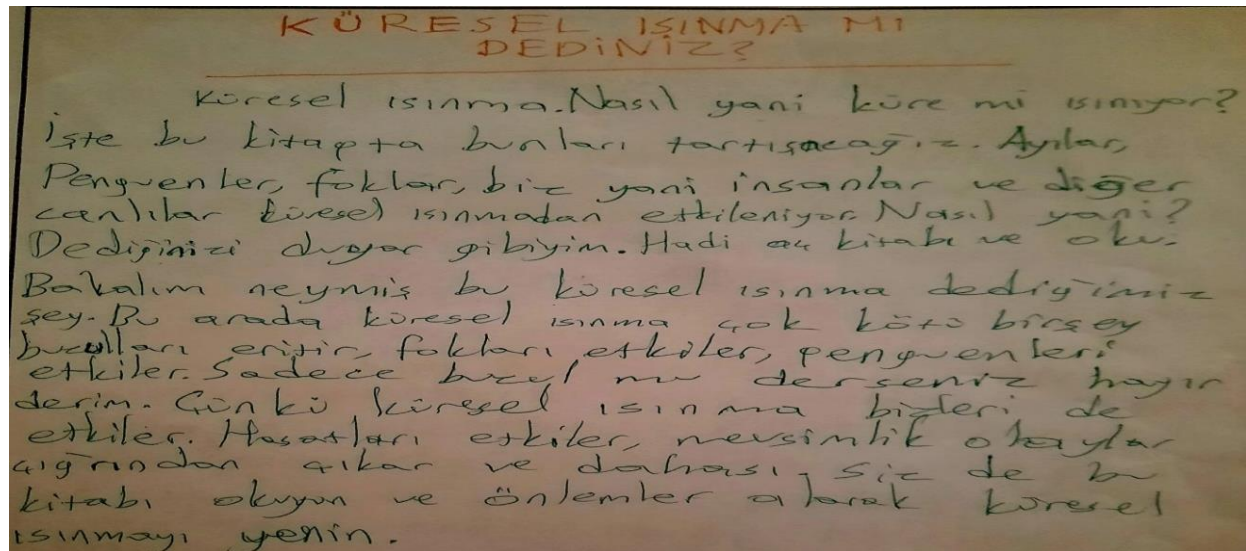 KÜRESEL ISINMA MI
DEDİNİZ?
Küresel ısınma. Nasıl yani küre mi ısınıyor?
İşte bu kitapta bunları tartışacağız. Ayılar,
Penguenler, foklar, biz yani insanlar ve diğer
canlılar küresel ısınmadan etkileniyor. Nasıl yani?
Dediğinizi duyar gibiyim. Hadi aç kitabı ve oku.
Bakalım neymiş bu küresel ısınma dediğimiz
şey. Bu arada küresel ısınma çok kötü birşey
buzulları eritir, fokları etkiler, penguenleri
etkiler. Sadece buzul mu derseniz hayır
derim. Çünkü küresel ısınma bizleri de
etkiler. Hasatları etkiler, mevsimlik olaylar
çığrından çıkar ve dahası. Siz de bu
kitabı okuyun ve önlemler alarak küresel
ısınmayı yenin.